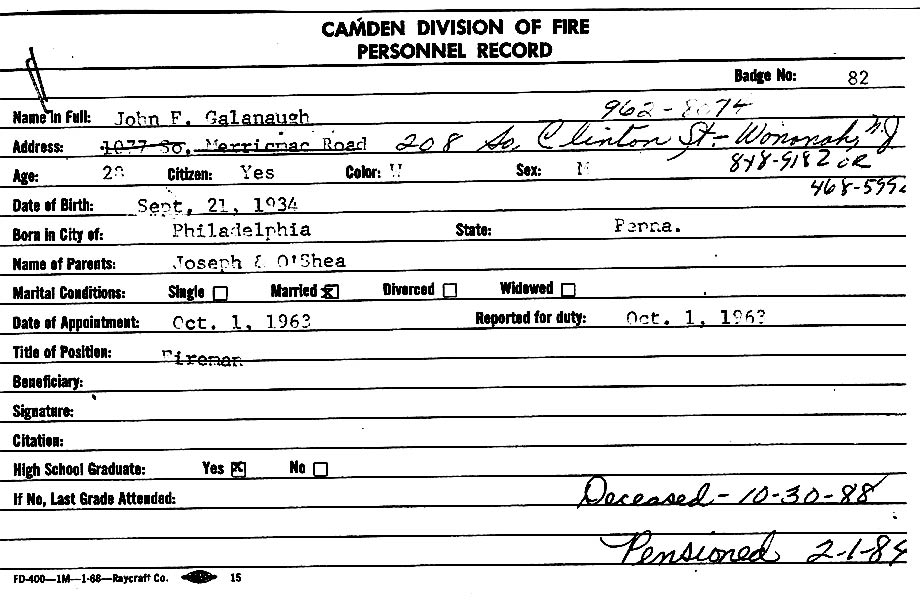 CAMDEN DIVISION OF FIRE
PERSONNEL RECORD
Badge No: 82
962-8074
Name in Full: John F. Galanaugh
Address: 1077 So. Merrimac Road 208 So. Clinton St- Wononah, N.J
848-9182 OR
Age: 28 Citizen: Yes Color: W Sex: M
468-599
Date of Birth: Sept. 21, 1934
Born in City of: Philadelphia State: Penna.
Name of Parents: Joseph & O'Shea
Marital Conditions: Single Married Divorced Widowed
Date of Appointment: Oct. 1, 1963 Reported for duty: Oct. 1, 1963
Title of Position: Fireman
Beneficiary:
Signature:
Citation:
High School Graduate: Yes No
If No, Last Grade Attended: Deceased - 10-30-88
Pensioned 2-1-84
FD-400—1M—1-68—Raycraft Co. 15